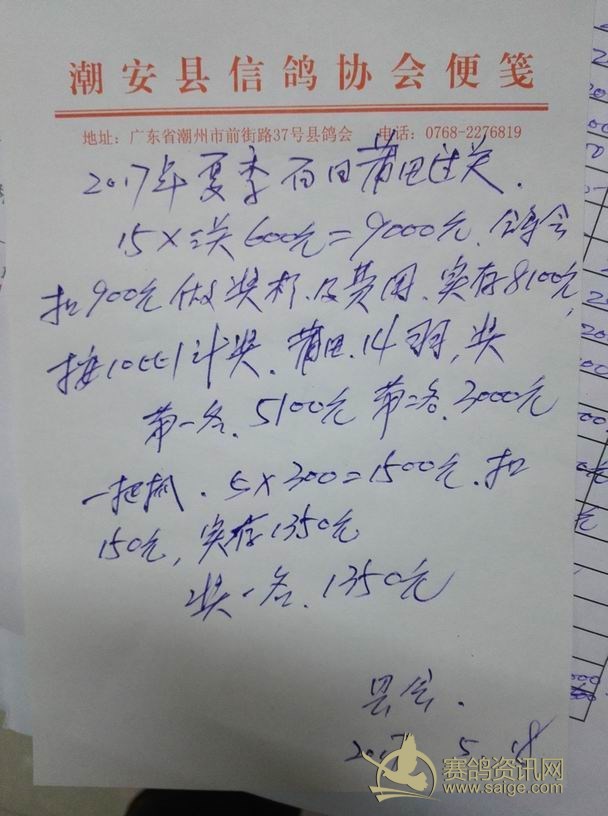 潮安县信鸽协会便笺
地址：广东省潮州市前街路37号县鸽会 电话：0768-2276819
2017年夏季百日莆田过关.
15×关600元=9000元.鸽会
扣900元做奖杯及费用、实存8100元,
按10比1计奖、莆田.14羽,奖
第一名、5100元 第二名.3000元
一把抓.5×300=1500元.扣
150元,实存1350元
奖一名、1350元
县会.
2017 5.18
赛鸽资讯网
www.saige.com